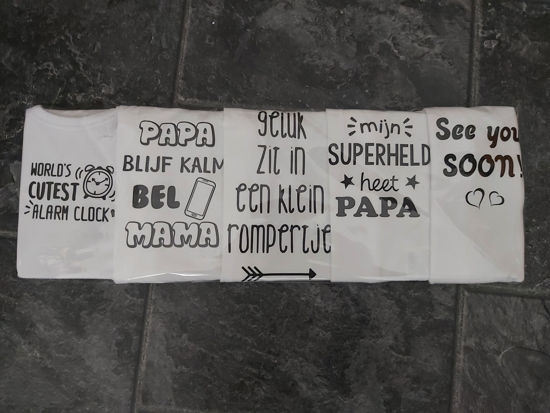 WORLD'S
CUTEST
ALARM CLOCK
PAPA
BLIJF KALM
BEL
MAMA
geluk
zit in
een klein
rompertje
mijn
SUPERHELD
heet
PAPA
See you
SOON!